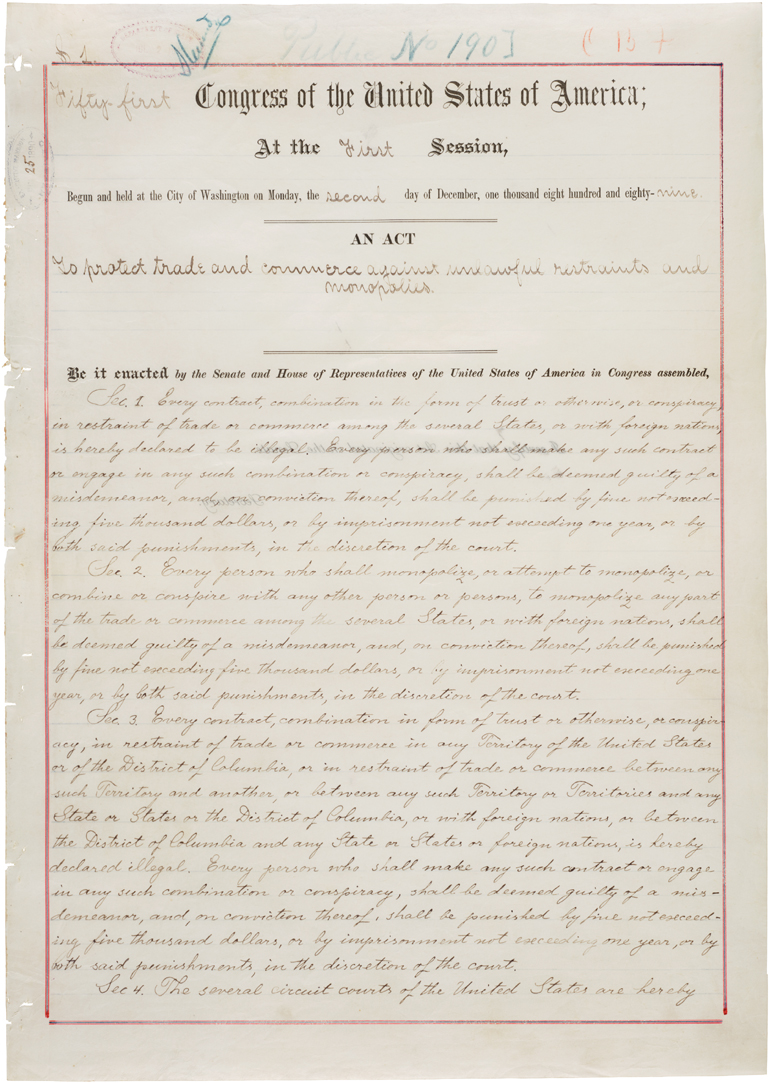 Public No 190
Fifty-first Congress of the United States of America;
At the First Session,
Begun and held at the City of Washington on Monday, the second day of December, one thousand eight hundred and eighty-nine.
AN ACT
To protect trade and commerce against unlawful restraints and
monopolies.
Be it enacted by the Senate and House of Representatives of the United States of America in Congress assembled,
Sec. 1. Every contract, combination in the form of trust or otherwise, or conspiracy,
in restraint of trade or commerce among the several States, or with foreign nations,
is hereby declared to be illegal. Every person who shall make any such contract
or engage in any such combination or conspiracy, shall be deemed guilty of a
misdemeanor, and, on conviction thereof, shall be punished by fine not exceed-
ing five thousand dollars, or by imprisonment not exceeding one year, or by
both said punishments, in the discretion of the court.
Sec. 2. Every person who shall monopolize, or attempt to monopolize, or
combine or conspire with any other person or persons, to monopolize any part
of the trade or commerce among the several States, or with foreign nations, shall
be deemed guilty of a misdemeanor, and, on conviction thereof, shall be punished
by fine not exceeding five thousand dollars, or by imprisonment not exceeding one
year, or by both said punishments, in the discretion of the court.
Sec. 3. Every contract, combination in form of trust or otherwise, or conspir-
acy, in restraint of trade or commerce in any Territory of the United States
or of the District of Columbia, or in restraint of trade or commerce between any
such Territory and another, or between any such Territory or Territories and any
State or States or the District of Columbia, or with foreign nations, or between
the District of Columbia and any State or States or foreign nations, is hereby
declared illegal. Every person who shall make any such contract or engage
in any such combination or conspiracy, shall be deemed guilty of a mis-
demeanor, and, on conviction thereof, shall be punished by fine not exceed-
ing five thousand dollars, or by imprisonment not exceeding one year, or by
both said punishments, in the discretion of the court.
Sec 4. The several circuit courts of the United States are hereby